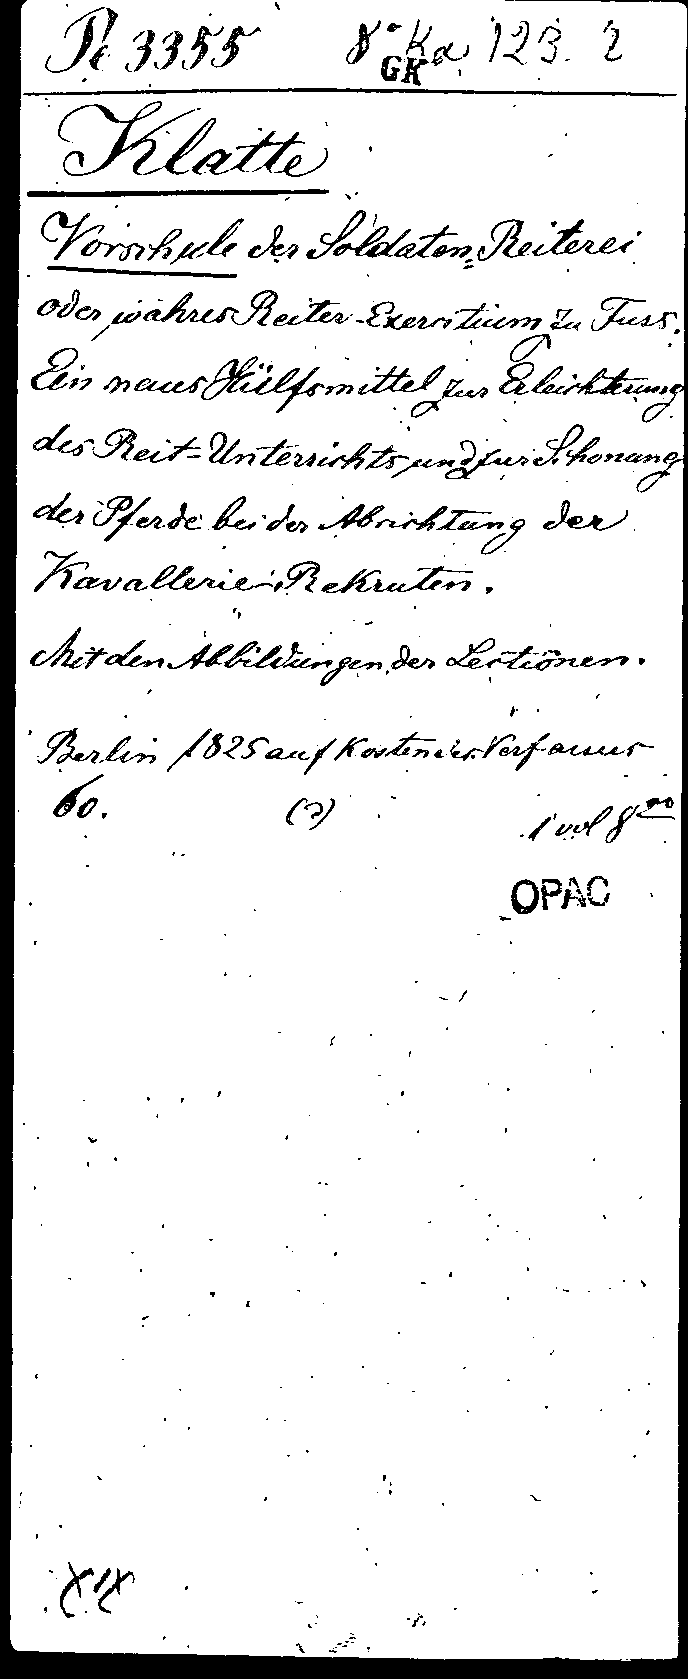 Pe 3355 8° Ka 123. 2
GK
Klatte
Vorschule der Soldaten-Reiterei
oder wahres Reiter-Exercitium zu Fuss.
Ein neues Hülfsmittel zur Erleichterung
des Reit-Unterrichts und zur Schonung
der Pferde bei der Abrichtung der
Kavallerie-Rekruten.
Mit den Abbildungen der Lectionen.
Berlin 1825 auf Kosten des Verfassers
60. (2) 1 vol 8vo
OPAC
XIX